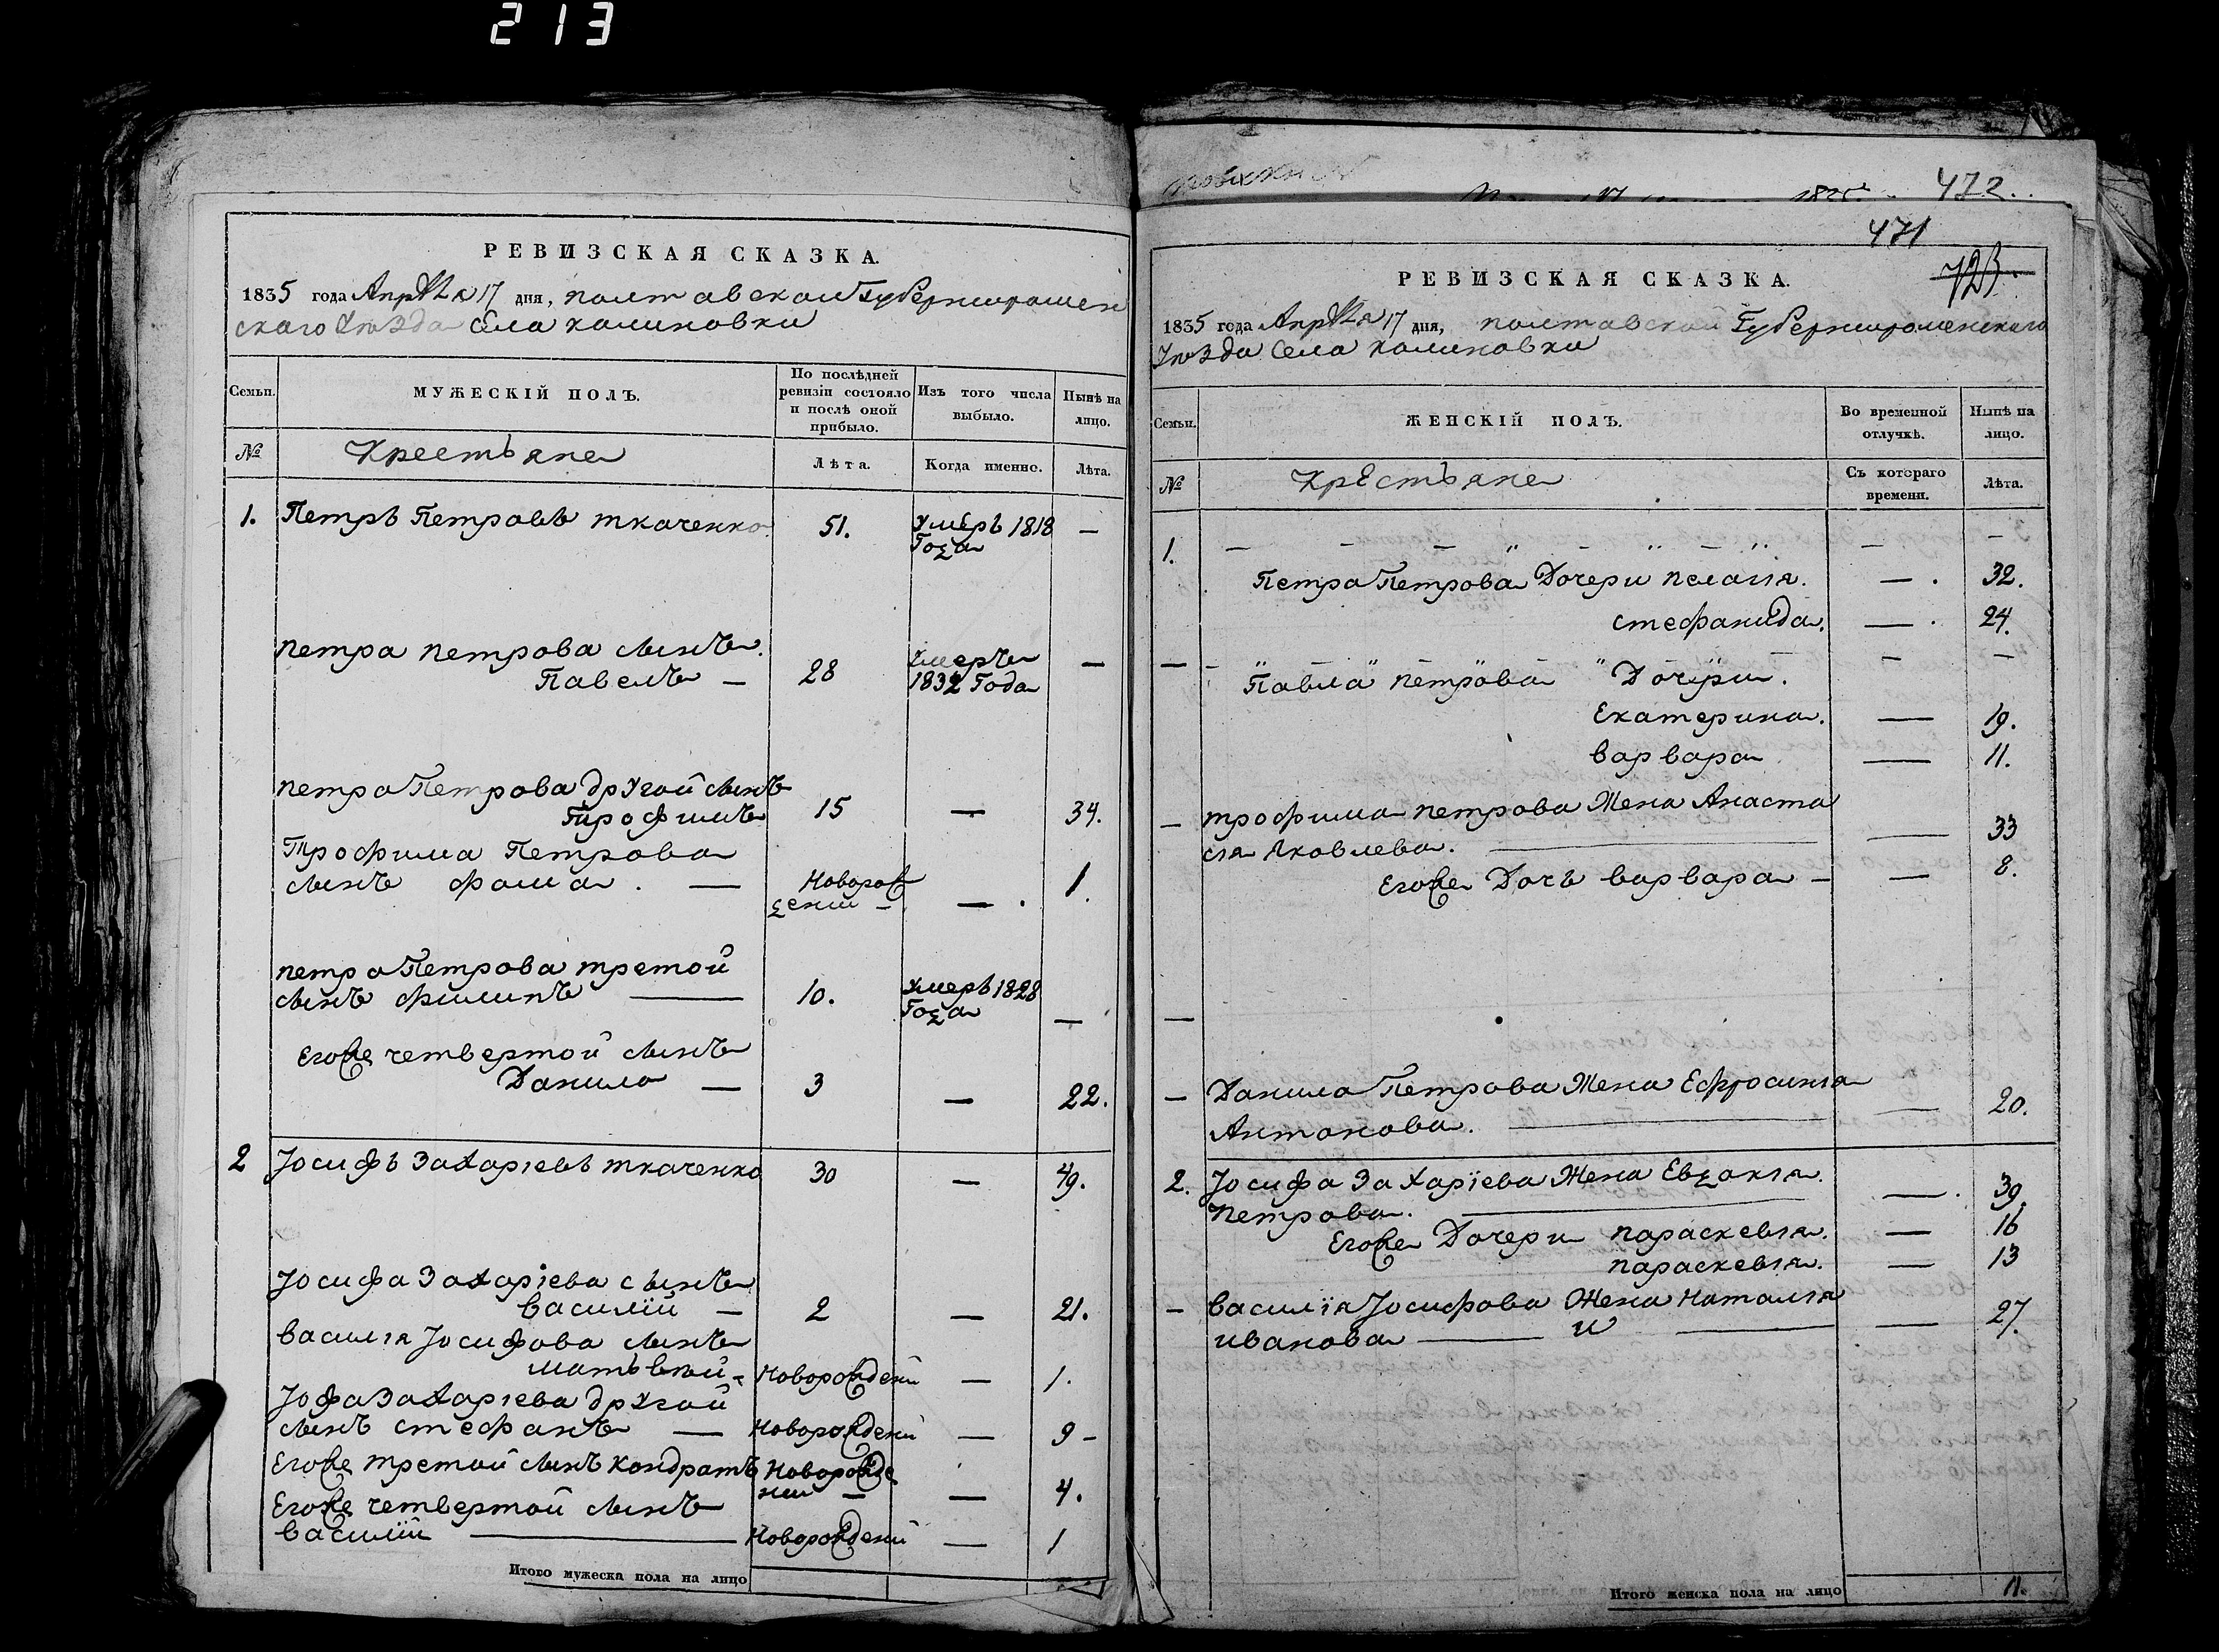 213
РЕВИЗСКАЯ СКАЗКА.
1835 года Апрѣля 17 дня, полтавской Губернии ромен
скаго Уѣзда Села калиновки
Семьи.
МУЖЕСКІЙ ПОЛЪ.
По послѣдней ревизіи состояло и послѣ оной прибыло.
Изъ того числа выбыло.
Нынѣ на лицо.
№ Крестьяне Лѣта. Когда именно. Лѣта.
1. Петръ Петровъ ткаченко. 51. умеръ 1818 —
Года
петра петрова сынъ
Павелъ — 28 умеръ 1832 Года —
петра Петрова другой сынъ
Трофимъ 15 — 34.
Трофима Петрова
сынъ фома. — Новорож
дений — — . 1.
петра Петрова третой
сынъ филипъ — 10. умеръ 1828
Года —
Егоже четвертой сынъ
Данило — 3 — 22.
2 Јосифъ Захаріевъ ткаченко 30 — 49.
Јосифа Захаріева сынъ
василій — 2 — 21.
василія Јосифова сынъ
матьвѣй - Новорожденй — 1.
Јофа Захаріева другой
сынъ стефанъ — Новорожденй — 9 -
Егоже третой сынъ кондратъ Новорожде
ний — — 4.
Егоже четвертой сынъ
василій — Новорожденй — 1
Итого мужеска пола на лицо
472.
471
723
РЕВИЗСКАЯ СКАЗКА.
1835 года Апрѣля 17 дня, полтавской Губернии роменскаго
Уѣзда Села калиновки
Семьи.
ЖЕНСКІЙ ПОЛЪ.
Во временной отлучкѣ.
Нынѣ на лицо.
№ Крестьяне Съ котораго времени. Лѣта.
1. — — — " — " — " — —
Петра Петрова Дочери пелагія. — . 32.
стефанида. — . 24.
— — " — " — " — " — —
Павла петрова Дочери.
Екатерина. — 19.
варвара — 11.
— трофима петрова Жена Анаста
сія Яковлева. — — 33
Егоже Дочь варвара — — 8.
—
— Данила Петрова Жена Ефросинія
Антонова. — — 20.
2. Јосифа Захаріева Жена Евдокія.
петрова. — — . 39.
Егоже Дочери параскевія. — 16
параскевія. — 13
— василія Јосифова Жена наталія
иванова — и — — 27.
Итого женска пола на лицо 11.